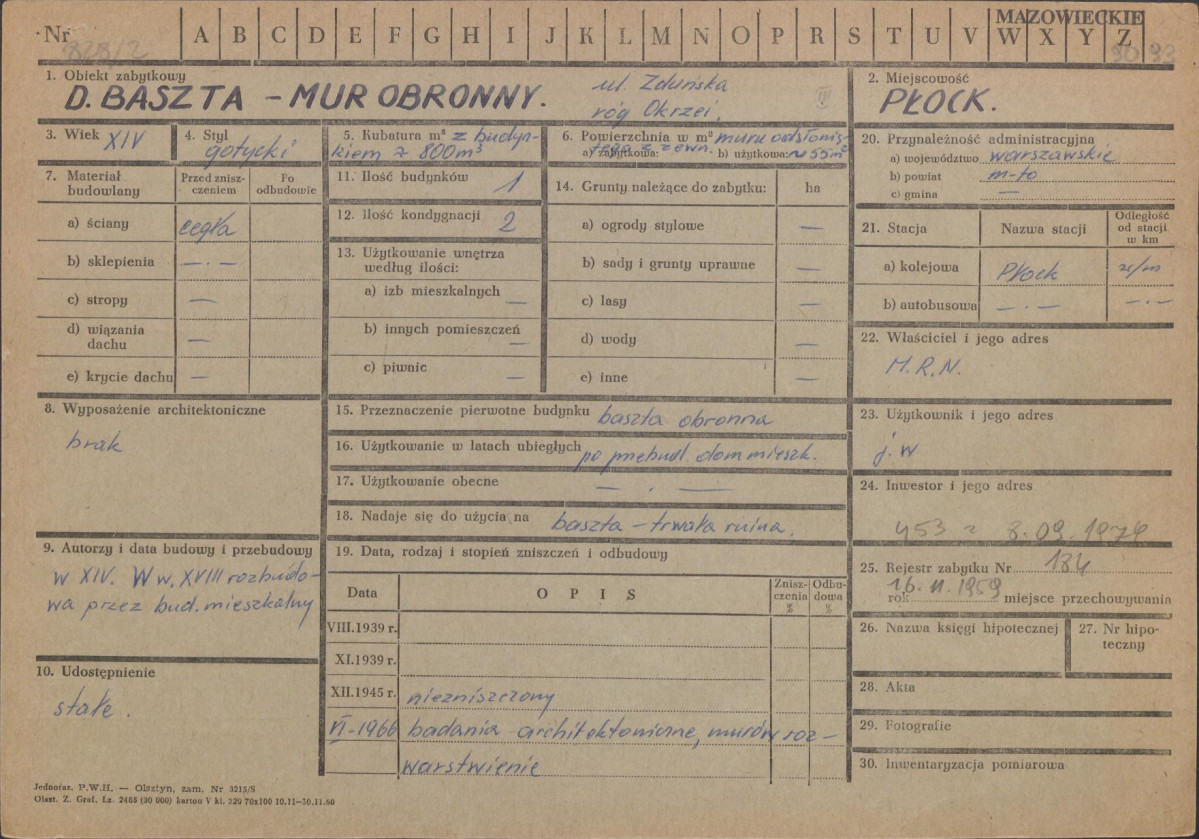 Nr A B C D E F G H I J K L M N O P R S T U V W X Y Z
MAZOWIECKIE
1. Obiekt zabytkowy
D. BASZTA – MUR OBRONNY.
ul. Zduńska
róg Okrzei.
2. Miejscowość
PŁOCK.
3. Wiek XIV
4. Styl
gotycki
5. Kubatura m³ z budyn-
kiem z 800m³
6. Powierzchnia w m² muru odsłonię-
tego z zewn.
a) zabytkowa: b) użytkowa: ~55m²
7. Materiał
budowlany
Przed znisz-
czeniem
Po
odbudowie
a) ściany cegła
b) sklepienia — · —
c) stropy —
d) wiązania
dachu —
e) krycie dachu —
8. Wyposażenie architektoniczne
brak
9. Autorzy i data budowy i przebudowy
w XIV. W w. XVIII rozbudo-
wa przez bud. mieszkalny
10. Udostępnienie
stałe.
11. Ilość budynków 1
12. Ilość kondygnacji 2
13. Użytkowanie wnętrza
według ilości:
a) izb mieszkalnych —
b) innych pomieszczeń —
c) piwnic —
14. Grunty należące do zabytku: ha
a) ogrody stylowe —
b) sady i grunty uprawne —
c) lasy —
d) wody —
e) inne —
15. Przeznaczenie pierwotne budynku baszta obronna
16. Użytkowanie w latach ubiegłych po przebud. dom mieszk.
17. Użytkowanie obecne — . —
18. Nadaje się do użycia na baszta – trwała ruina.
19. Data, rodzaj i stopień zniszczeń i odbudowy
Data OPIS Znisz-
czenia
% Odbu-
dowa
%
VIII.1939 r.
XI.1939 r.
XII.1945 r. niezniszczony
VI-1966 badania architektoniczne, murów roz-
warstwienie
20. Przynależność administracyjna
a) województwo warszawskie
b) powiat m-to
c) gmina —
21. Stacja Nazwa stacji Odległość
od stacji
w km
a) kolejowa Płock
b) autobusowa — · — — · —
22. Właściciel i jego adres
M.R.N.
23. Użytkownik i jego adres
j.w
24. Inwestor i jego adres
453 z 8.09.1979
25. Rejestr zabytku Nr 184
rok 16.11.1959 miejsce przechowywania
26. Nazwa księgi hipotecznej
27. Nr hipo-
teczny
28. Akta
29. Fotografie
30. Inwentaryzacja pomiarowa
Jednoraz. P.W.H. — Olsztyn, zam. Nr 3215/S
Olszt. Z. Graf. Lz. 2485 (30 000) karton V kl. 220 70x100 10.11—30.11.60